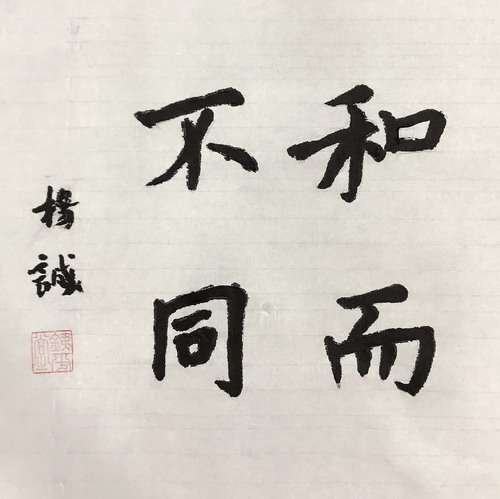 和而
不同
楊誠